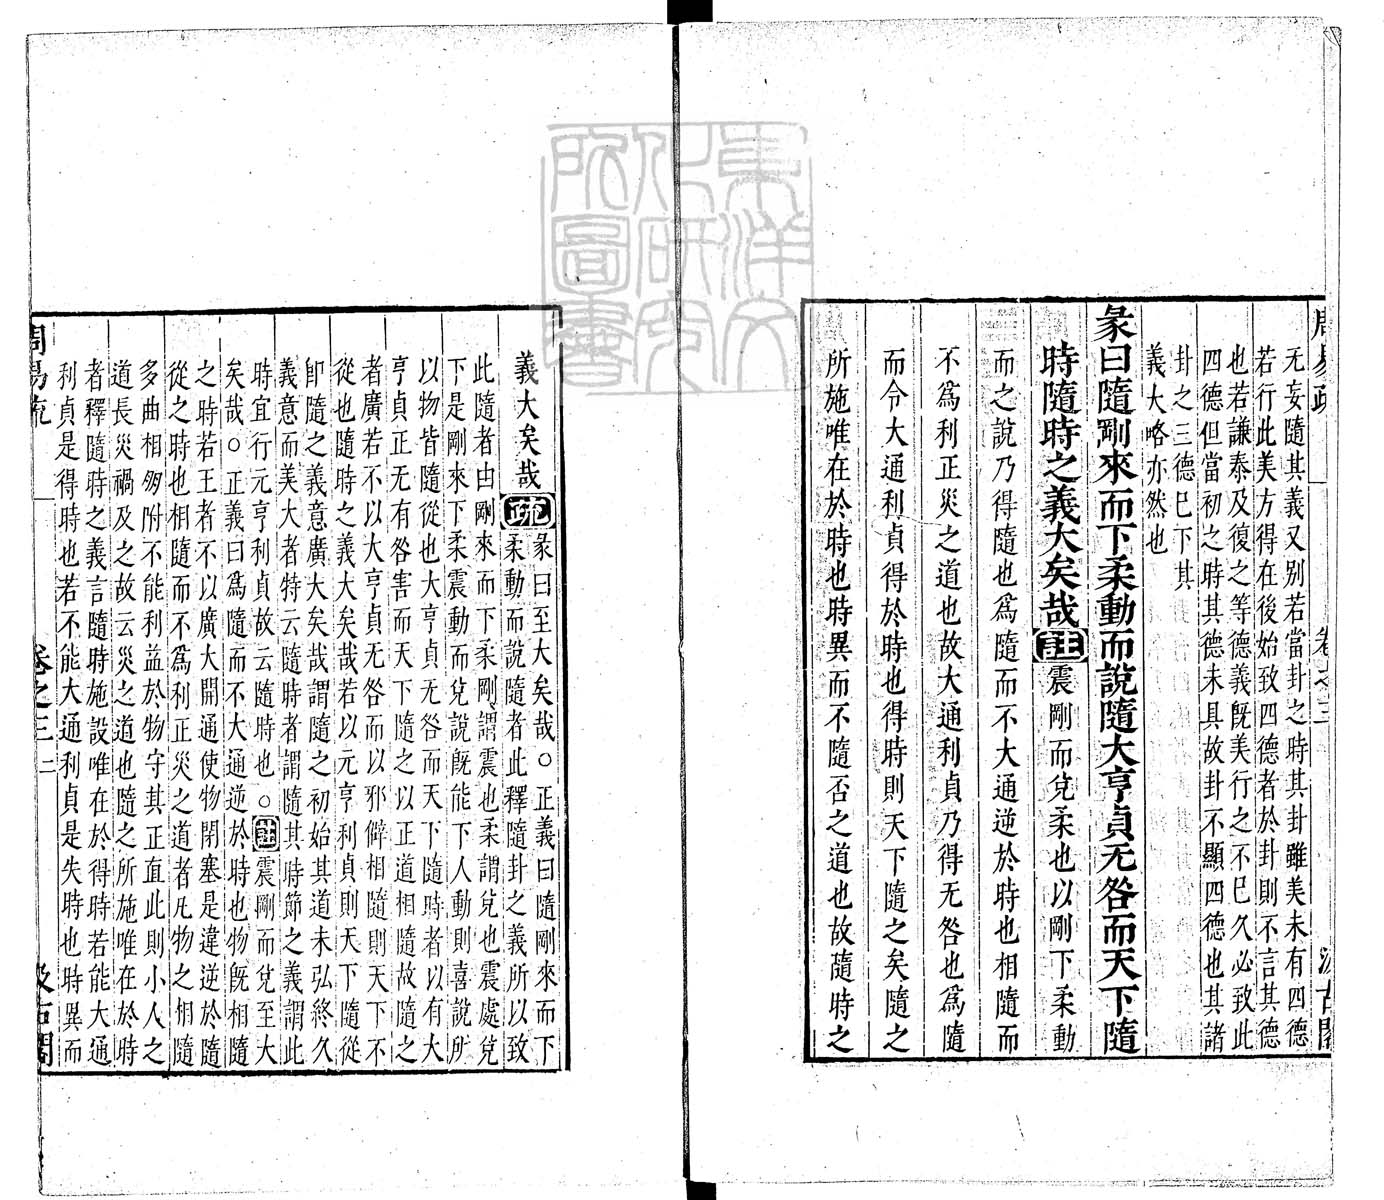 无妄隨其義又別若當卦之時其卦雖美未有四德
若行此美方得在後始致四德者於卦則不言其德
也若謙泰及復之等德義旣美行之不巳久必致此
四德但當初之時其德未具故卦不顯四德也其諸
卦之三德巳下其
義大略亦然也
彖曰隨剛來而下柔動而說隨大亨貞无咎而天下隨
時隨時之義大矣哉註震剛而兌柔也以剛下柔動
而之說乃得隨也爲隨而不大通逆於時也相隨而
不爲利正災之道也故大通利貞乃得无咎也爲隨
而令大通利貞得於時也得時則天下隨之矣隨之
所施唯在於時也時異而不隨否之道也故隨時之
義大矣哉疏
彖曰至大矣哉○正義曰隨剛來而下
柔動而說隨者此釋隨卦之義所以致
此隨者由剛來而下柔剛謂震也柔謂兌也震處兌
下是剛來下柔震動而兌說旣能下人動則喜說所
以物皆隨從也大亨貞无咎而天下隨時者以有大
亨貞正无有咎害而天下隨之以正道相隨故隨之
者廣若不以大亨貞无咎而以邪僻相隨則天下不
從也隨時之義大矣哉若以元亨利貞則天下隨從
卽隨之義意廣大矣哉謂隨之初始其道未弘終久
義意而美大者特云隨時者謂隨其時節之義謂此
時宜行元亨利貞故云隨時也○註震剛而兌至大
矣哉○正義曰爲隨而不大通逆於時也物旣相隨
之時若王者不以廣大開通使物閉塞是違逆於隨
從之時也相隨而不爲利正災之道者凡物之相隨
多曲相朋附不能利益於物守其正直此則小人之
道長災禍及之故云災之道也隨之所施唯在於時
者釋隨時之義言隨時施設唯在於得時若能大通
利貞是得時也若不能大通利貞是失時也時異而
周易疏 卷之三 二 汲古閣